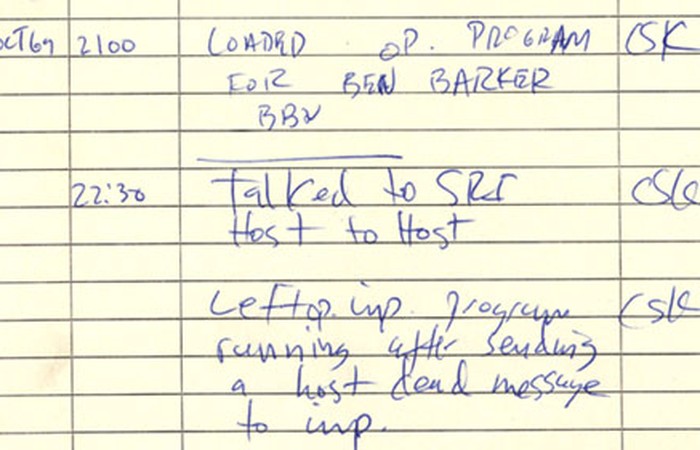 OCT 69 2100 LOADED OP. PROGRAM CSK
FOR BEN BARKER
BBN
22:30 Talked to SRI CSK
Host to Host
Left op. imp. program CSK
running after sending
a host dead message
to imp.